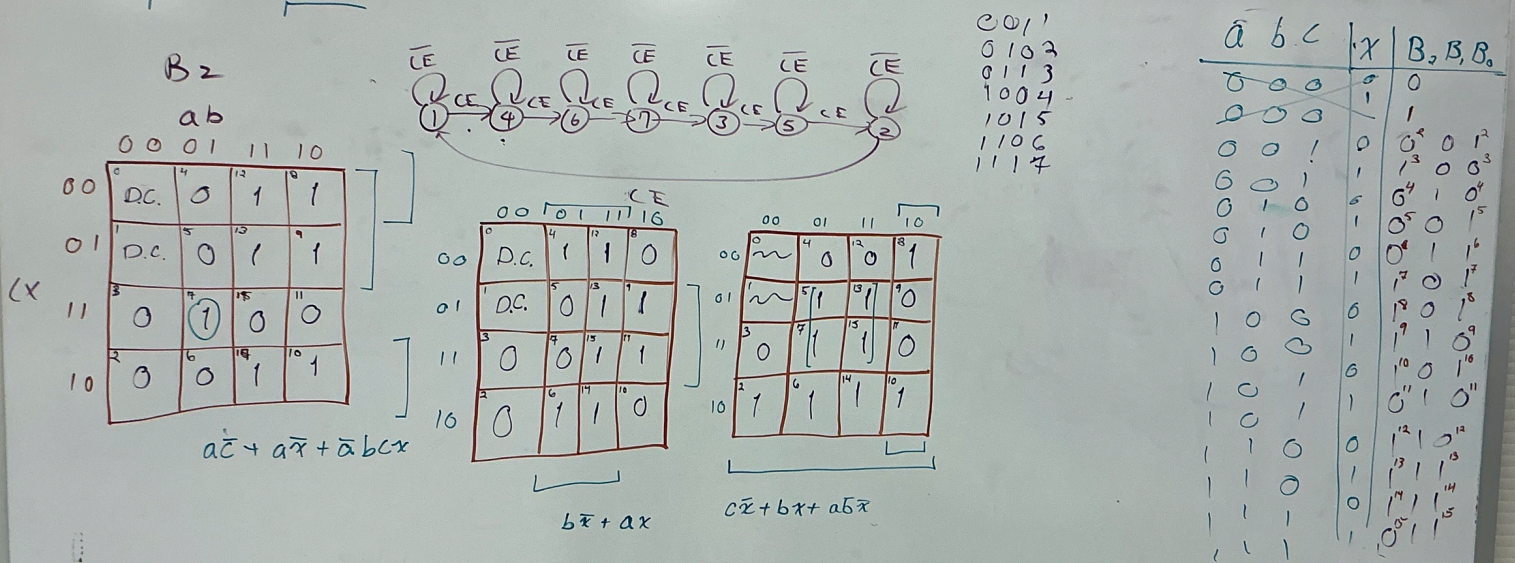 B2
ab
00 01 11 10
00 0 D.C. 4 0 12 1 8 1
01 1 D.C. 5 0 13 1 9 1
CX
11 3 0 7 1 15 0 11 0
10 2 0 6 0 14 1 10 1
ac̅ + ax̅ + a̅bcx
C̅E̅ C̅E̅ C̅E̅ C̅E̅ C̅E̅ C̅E̅ C̅E̅
CE CE CE CE CE CE
1 4 6 7 3 5 2
CE
00 01 11 10
00 0 D.C. 4 1 12 1 8 0
01 1 D.C. 5 0 13 1 9 1
11 3 0 7 0 15 1 11 1
10 2 0 6 1 14 1 10 0
bx̅ + ax
00 01 11 10
00 0 4 0 12 0 8 1
01 1 5 1 13 1 9 0
11 3 0 7 1 15 1 11 0
10 2 1 6 1 14 1 10 1
cx̅ + bx + ab̅x̅
001 1
010 2
011 3
100 4
101 5
110 6
111 7
a b c X B2 B1 B0
0 0 0 0 0
0 0 0 1 1
0 0 1 0 0² 0 1²
0 0 1 1 1³ 0 0³
0 1 0 0 0⁴ 1 0⁴
0 1 0 1 0⁵ 0 1⁵
0 1 1 0 0⁶ 1 1⁶
0 1 1 1 1⁷ 0 1⁷
1 0 0 0 1⁸ 0 1⁸
1 0 0 1 1⁹ 1 0⁹
1 0 1 0 1¹⁰ 0 1¹⁰
1 0 1 1 0¹¹ 1 0¹¹
1 1 0 0 1¹² 1 0¹²
1 1 0 1 1¹³ 1 1¹³
1 1 1 0 1¹⁴ 1 1¹⁴
1 1 1 1 0¹⁵ 1 1¹⁵